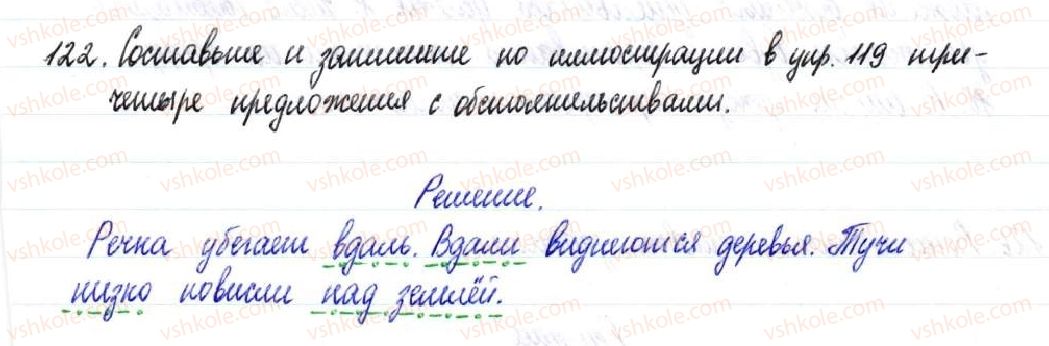 122. Составьте и запишите по иллюстрации в упр. 119 три-
четыре предложения с обстоятельствами.
Решение.
Речка убегает вдаль. Вдали виднеются деревья. Тучи
низко повисли над землёй.
vshkole.com